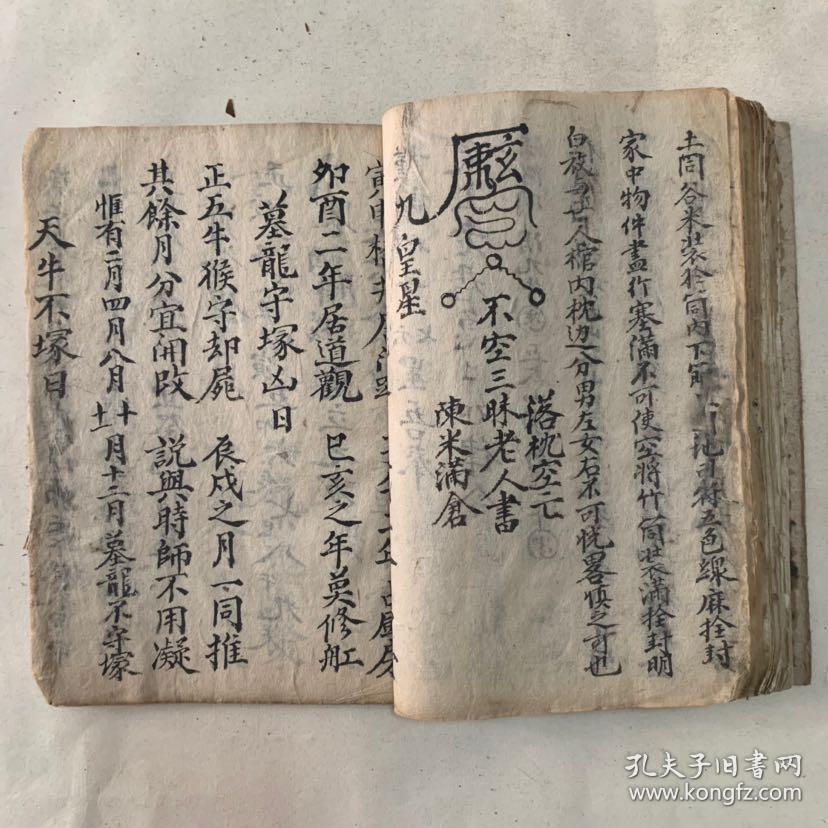 土 谷米装於筒內下 五色線麻拴封
家中物件盡作塞滿不可使空將竹筒装滿拴封明
白放 亡人棺內枕边一分男左女右不可恍畧慎之可也
落枕空亡
不空三昧老人書
陳米滿倉
九皇星
卯酉二年居道觀 巳亥之年莫修舡
墓龍守塚凶日
正五牛猴守却屍 辰戌之月一同推
其餘月分宜開改 說與時師不用凝
惟有二月四月八月 十月十二月墓龍不守塚
天牛不塚日
孔夫子旧书网
www.kongfz.com